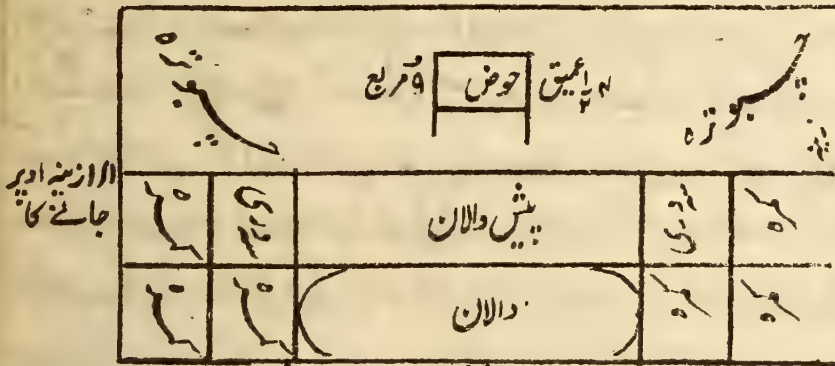 چبوترہ
۴ ۱/۲ عمیق
حوض
۹ مربع
چبوترہ
زینہ اوپر
جانے کا
حجرہ
پیش دالان
حجرہ
حجرہ
حجرہ
دالان
حجرہ
حجرہ